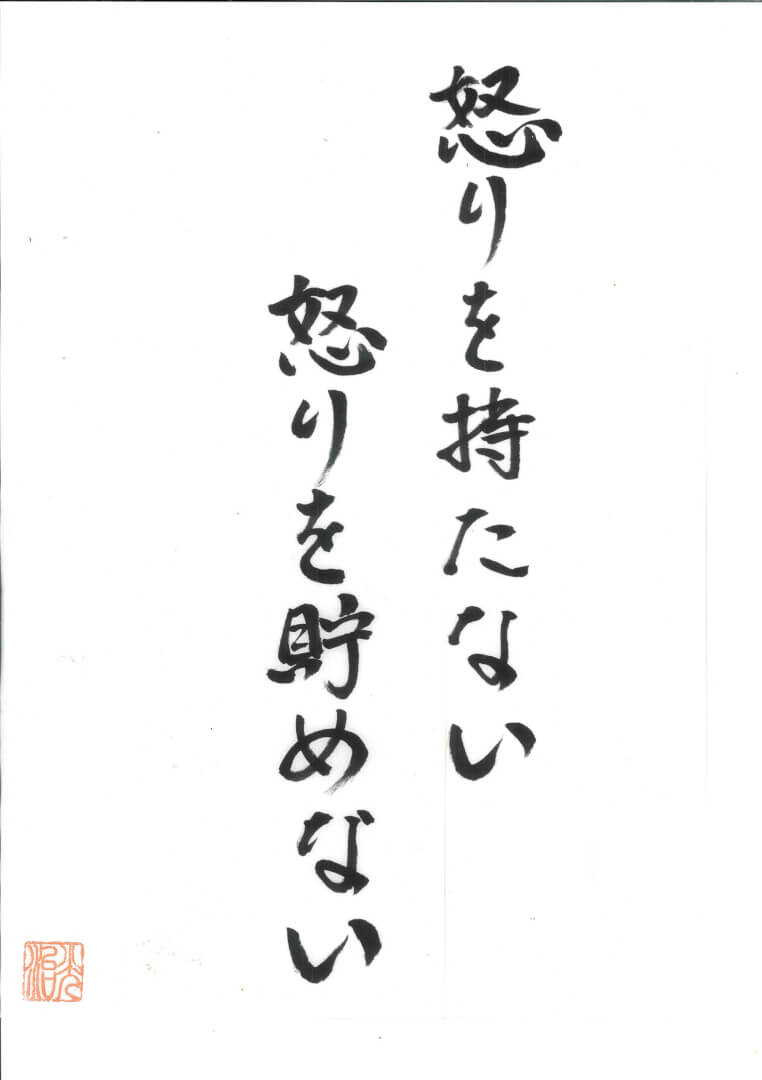 怒りを持たない
怒りを貯めない